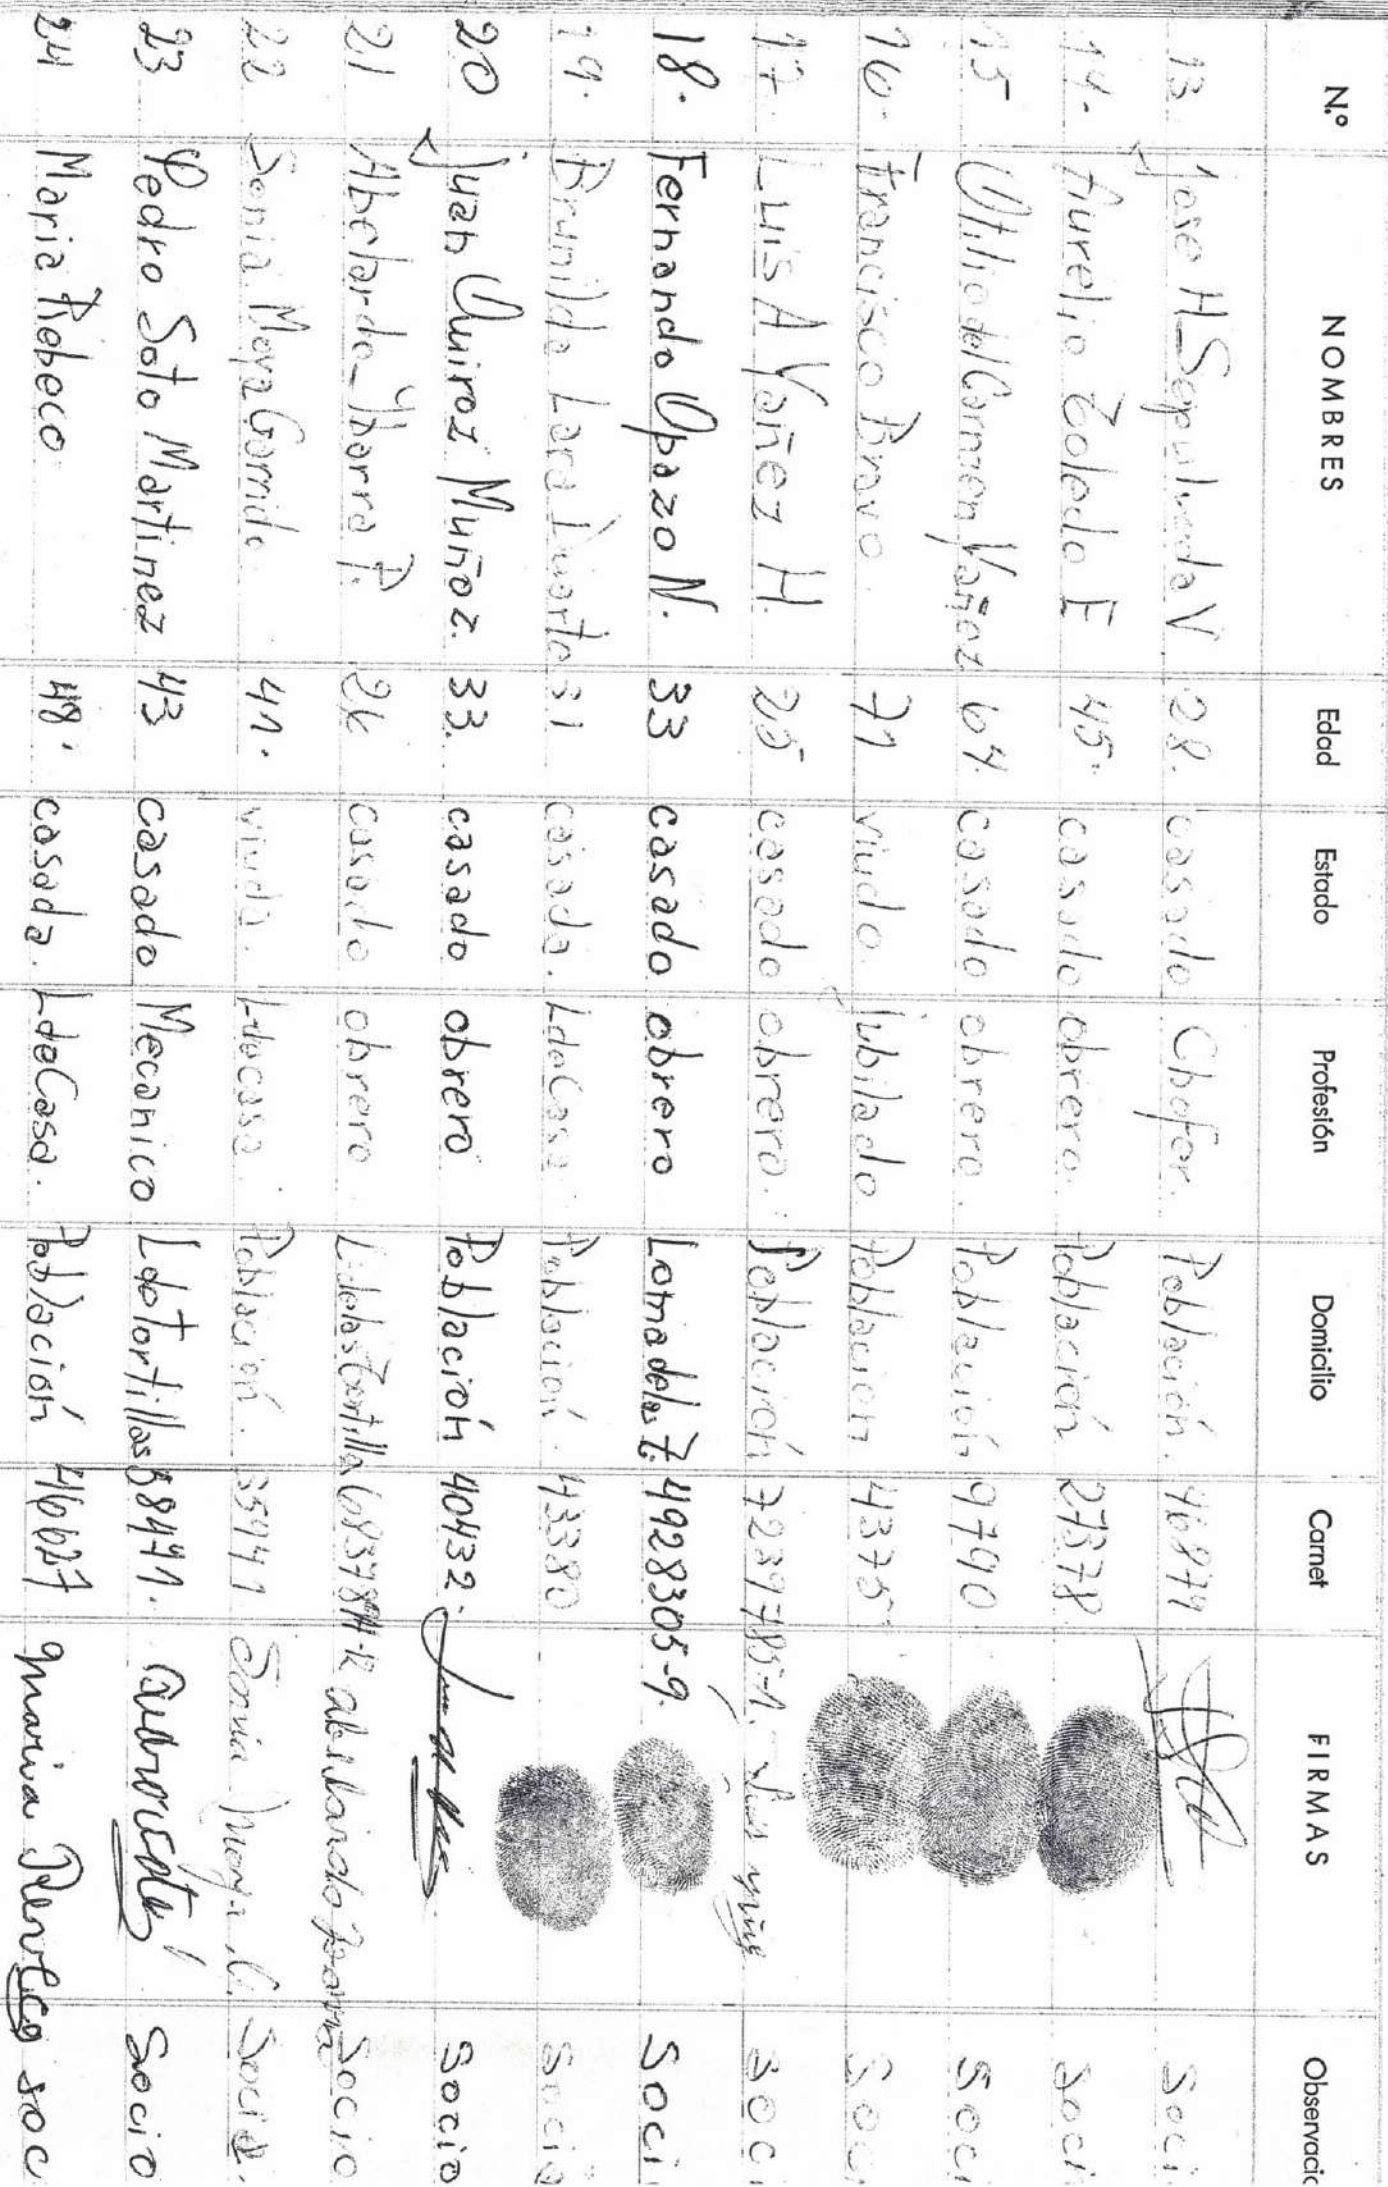 N.º NOMBRES Edad Estado Profesión Domicilio Carnet FIRMAS Observacio
13. Jose H Sepulveda V 28. casado Chofer. Población. 46874 Soci
14. Aurelio Toledo E 45. casado obrero. Población 27378. Soci
15 Otilio del Carmen Yañez 64. casado obrero. Población 9790 Soci
16. Francisco Bravo. 71 viudo. jubilado Poblacion 4375 Soci
17. Luis A Yañez H. 25 casado obrero. Población 7239785-1. Soci
18. Fernando Opazo N. 33 casado obrero Loma de las T. 4928305-9. Soci
19. Brunilda Lara 31 casada. LdeCasa Población. 43380 Socia
20 Juan Quiroz Muñoz. 33. casado obrero Población 40432. Socio
21 Abelardo Ybarra P. 26 casado obrero. L. de las Tortilla Socio
22 Sonia Moya Garrido 41. viuda. Ldecasa. Población. 35941 Sonia Moya G. Socia.
23 Pedro Soto Martinez 43 casado Mecanico L de Tortillas 58471. Socio
24 Maria Rebeco 48. casada. LdeCasa. Población 46627 Maria Soc